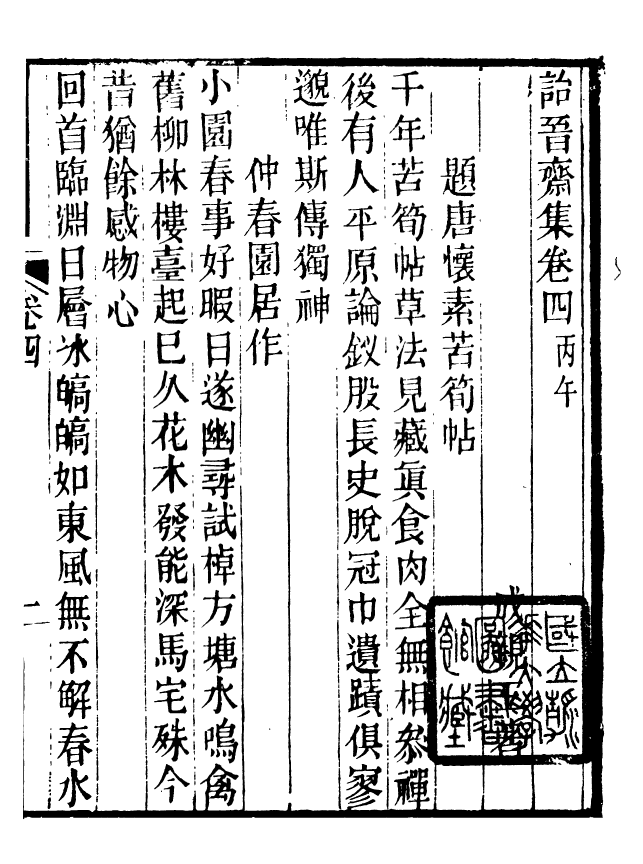 詒晉齋集卷四 丙午
成親王著
題唐懷素苦筍帖
千年苦筍帖草法見藏眞食肉全無相叅禪
後有人平原論釵股長史脫冠巾遺蹟俱寥
邈唯斯傳獨神
仲春園居作
小園春事好暇日遂幽尋試棹方塘水鳴禽
舊柳林樓臺起已久花木發能深馬宅殊今
昔猶餘感物心
回首臨淵日層冰皜皜如東風無不解春水
卷四